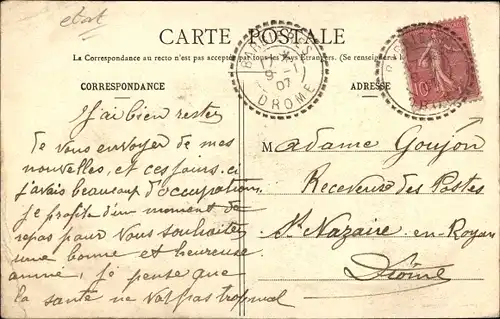 CARTE POSTALE
La Correspondance au recto n'est pas acceptée par tous les Pays Étrangers. (Se renseigner à la
CORRESPONDANCE
ADRESSE
9-1
07
DROME
10
J'ai bien restée
de vous envoyer de mes
nouvelles, et ces jours ci
j'avais beaucoup d'occupation
je profite d'un moment de
repas pour vous souhaiter
une bonne et heureuse
année, je pense que
la santé ne va pas trop mal
Madame Goujon
Receveuse des Postes
St Nazaire-en-Royan
Drôme